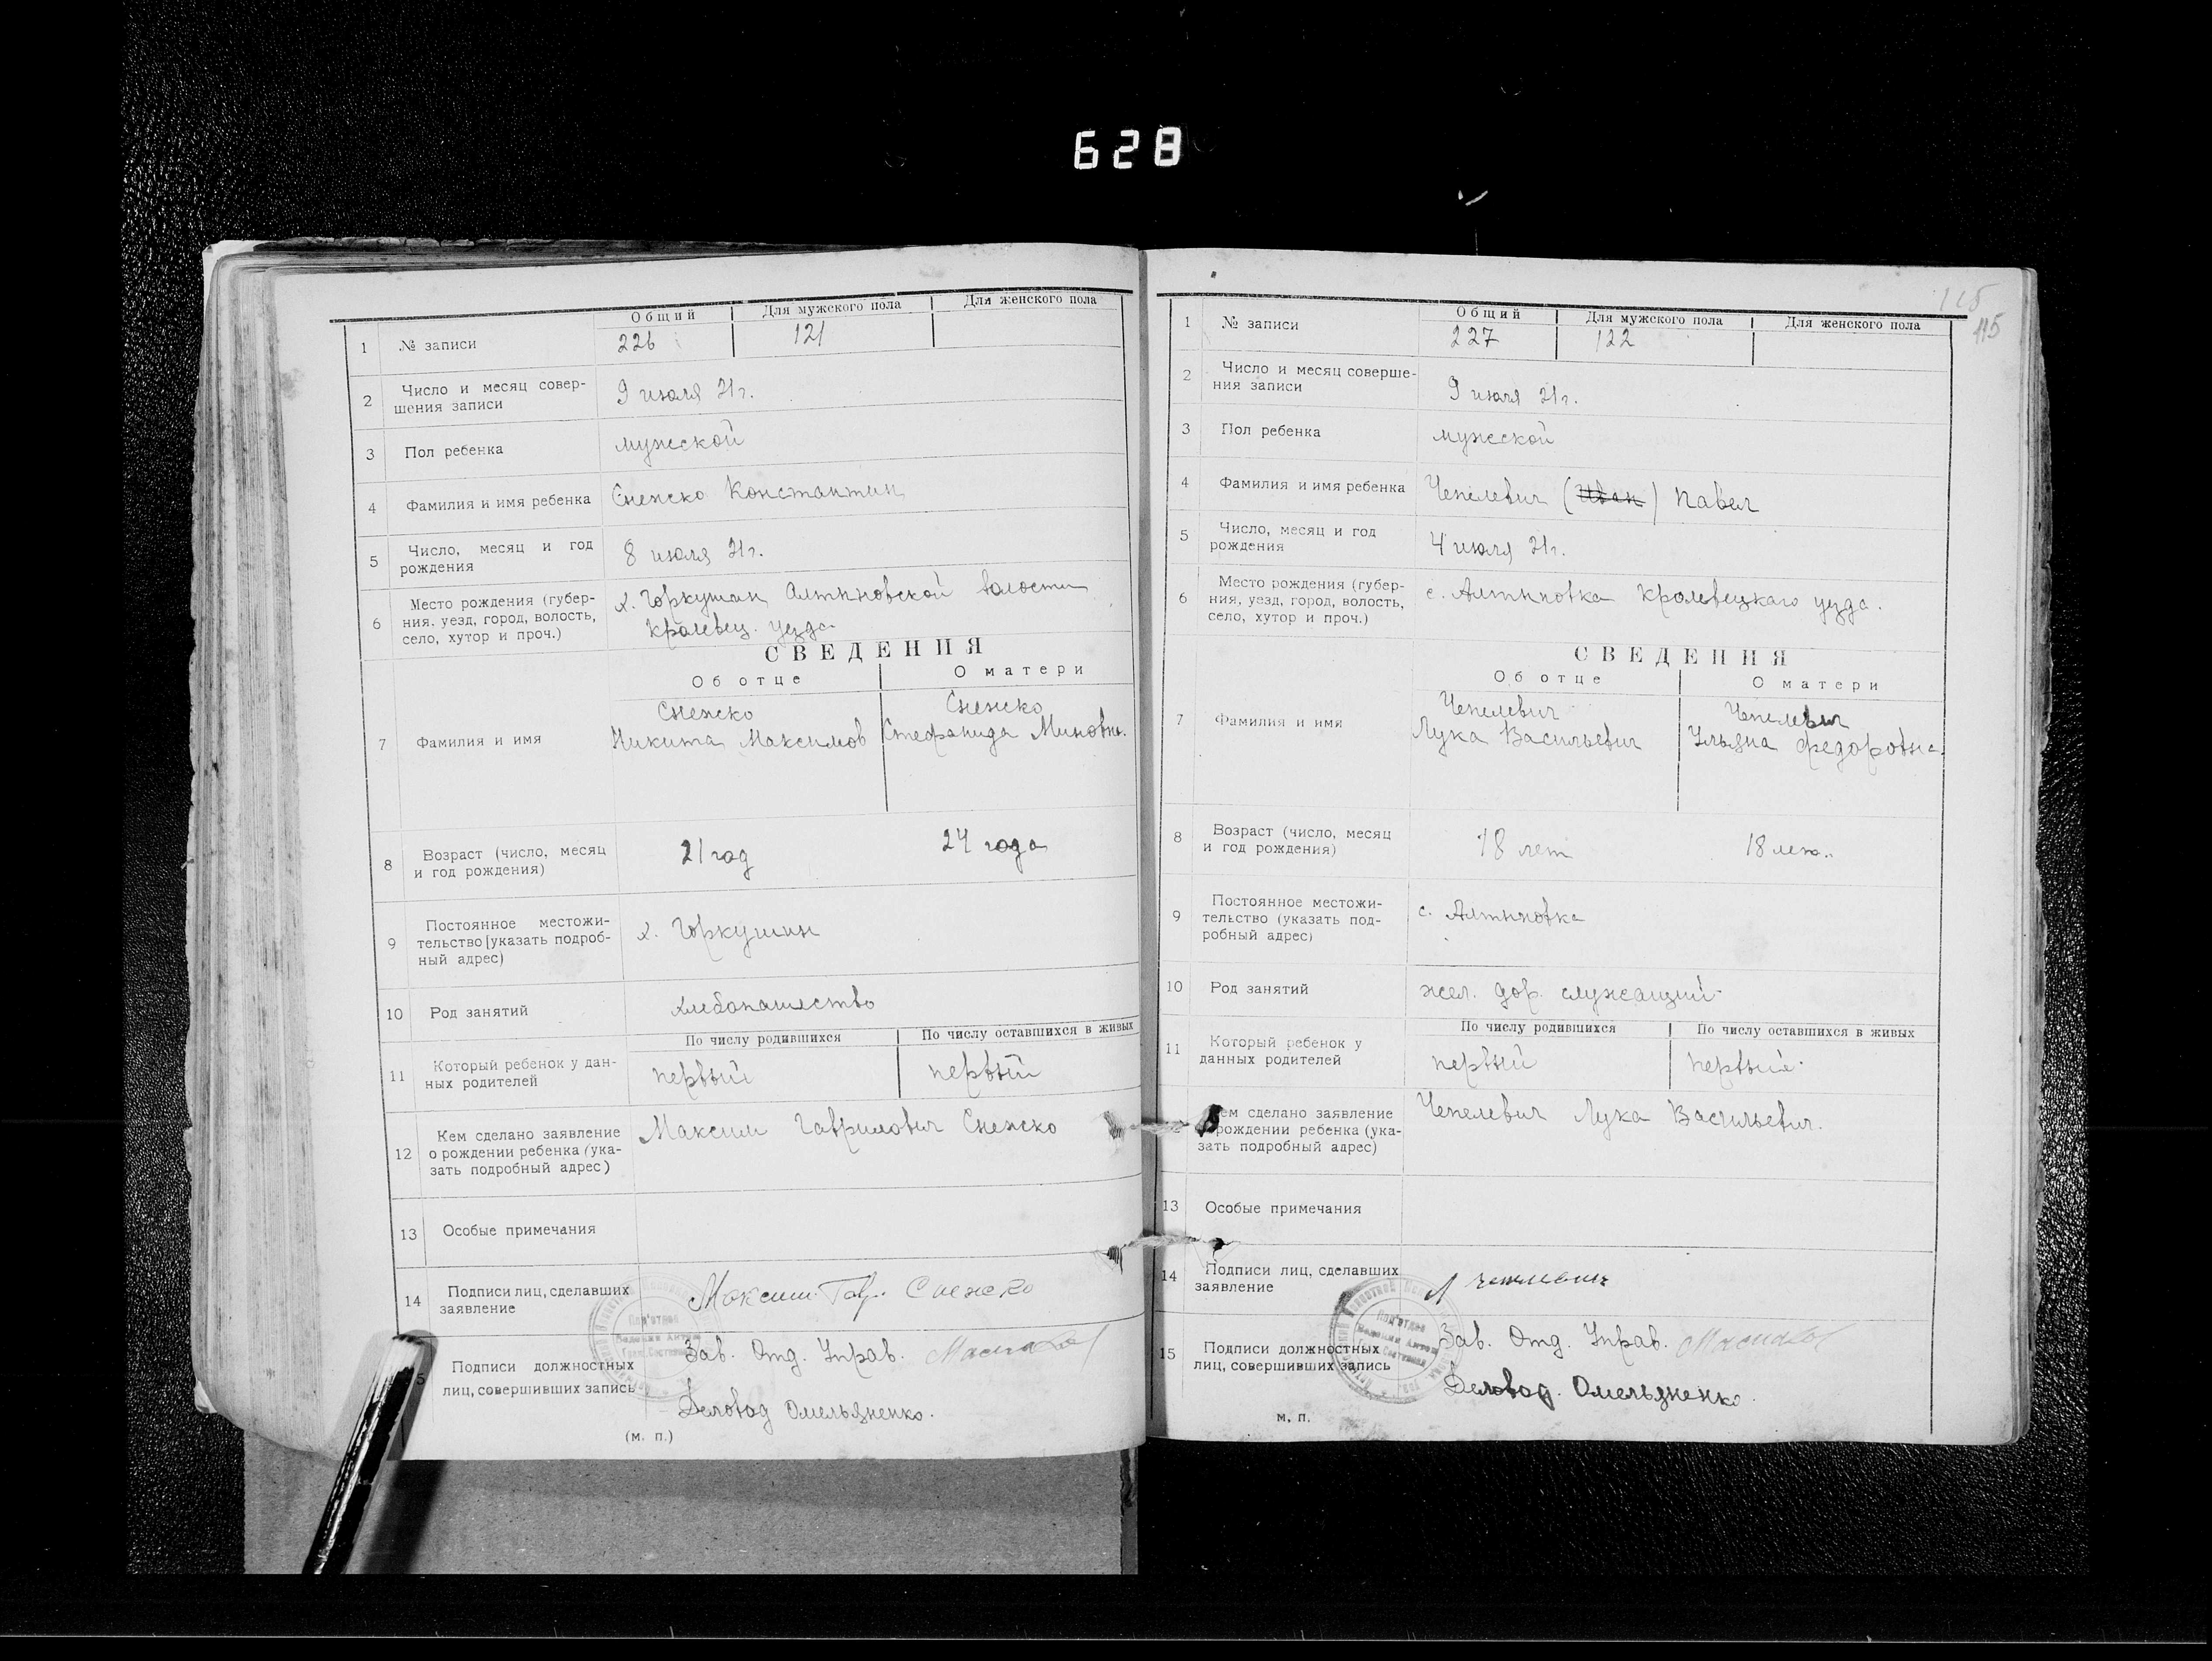 628
Общий Для мужского пола Для женского пола
1 № записи 226 121
2 Число и месяц совер-
шения записи 9 июля 21г.
3 Пол ребенка мужской
4 Фамилия и имя ребенка Снежко Константин
5 Число, месяц и год
рождения 8 июля 21г.
6 Место рождения (губер-
ния, уезд, город, волость,
село, хутор и проч.)
х. Горкушин Алтиновской волости
Кролевец. уезда
СВЕДЕНИЯ
Об отце О матери
7 Фамилия и имя
Снежко Снежко
Никита Максимов Стефанида Миновн.
8 Возраст (число, месяц
и год рождения) 21 год 24 года
9 Постоянное местожи-
тельство [указать подроб-
ный адрес) х. Горкушин
10 Род занятий хлебопашество
По числу родившихся По числу оставшихся в живых
11 Который ребенок у дан-
ных родителей первый первый
12 Кем сделано заявление
о рождении ребенка (ука-
зать подробный адрес)
Максим Гаврилович Снежко
13 Особые примечания
14 Подписи лиц, сделавших
заявление Максим Гав. Снежко
Подписи должностных
лиц, совершивших запись
Зав. Отд. Управ.
Деловод Омельяненко.
(м. п.)
115
Общий Для мужского пола Для женского пола
1 № записи 227 122
2 Число и месяц соверше-
ния записи 9 июля 21г.
3 Пол ребенка мужской
4 Фамилия и имя ребенка Чепелевич (Иван) Павел
5 Число, месяц и год
рождения 4 июля 21г.
6 Место рождения (губер-
ния, уезд, город, волость,
село, хутор и проч.)
с. Алтиновка Кролевецкаго уезда.
СВЕДЕНИЯ
Об отце О матери
7 Фамилия и имя
Чепелевич Чепелевич
Лука Васильевич Ульяна Федоровна.
8 Возраст (число, месяц
и год рождения) 18 лет 18 лет.
9 Постоянное местожи-
тельство (указать под-
робный адрес) с. Алтиновка
10 Род занятий жел. дор. служащий
По числу родившихся По числу оставшихся в живых
11 Который ребенок у
данных родителей первый первый
ем сделано заявление
рождении ребенка (ука-
зать подробный адрес)
Чепелевич Лука Васильевич.
13 Особые примечания
14 Подписи лиц, сделавших
заявление Л Чепелевич
15 Подписи должностных
лиц, совершивших запись
Зав. Отд. Управ.
Деловод. Омельяненко.
м. п.